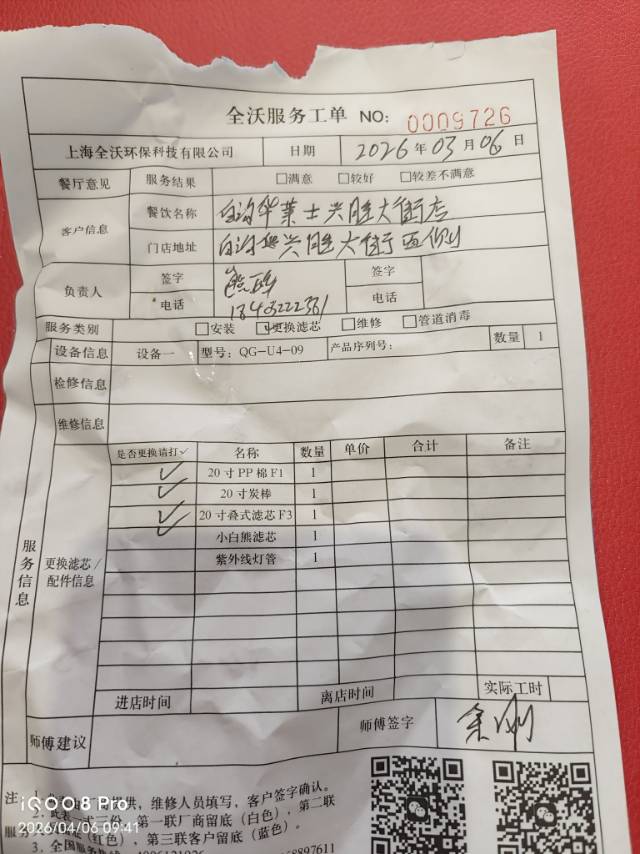 全沃服务工单 NO: 0009726
上海全沃环保科技有限公司 日期 2026年03月06日
餐厅意见 服务结果 □满意 □较好 □较差不满意
客户信息 餐饮名称 华莱士兴胜大街店
门店地址 兴胜大街
负责人 签字 签字
电话 电话
服务类别 □安装 ☑更换滤芯 □维修 □管道消毒
设备信息 设备一 型号: QG-U4-09 产品序列号: 数量 1
检修信息
维修信息
服务信息 更换滤芯/配件信息
是否更换请打✓ 名称 数量 单价 合计 备注
✓ 20寸PP棉F1 1
✓ 20寸炭棒 1
✓ 20寸叠式滤芯F3 1
✓ 小白熊滤芯 1
紫外线灯管 1
进店时间 离店时间 实际工时
师傅建议 师傅签字
注: 1. 提供, 维修人员填写, 客户签字确认。
2. 此表一式三份, 第一联厂商留底 (白色), 第二联
服务 (红色), 第三联客户留底 (蓝色)。
3. 全国服务热线
iQOO 8 Pro
2026/04/06 09:41